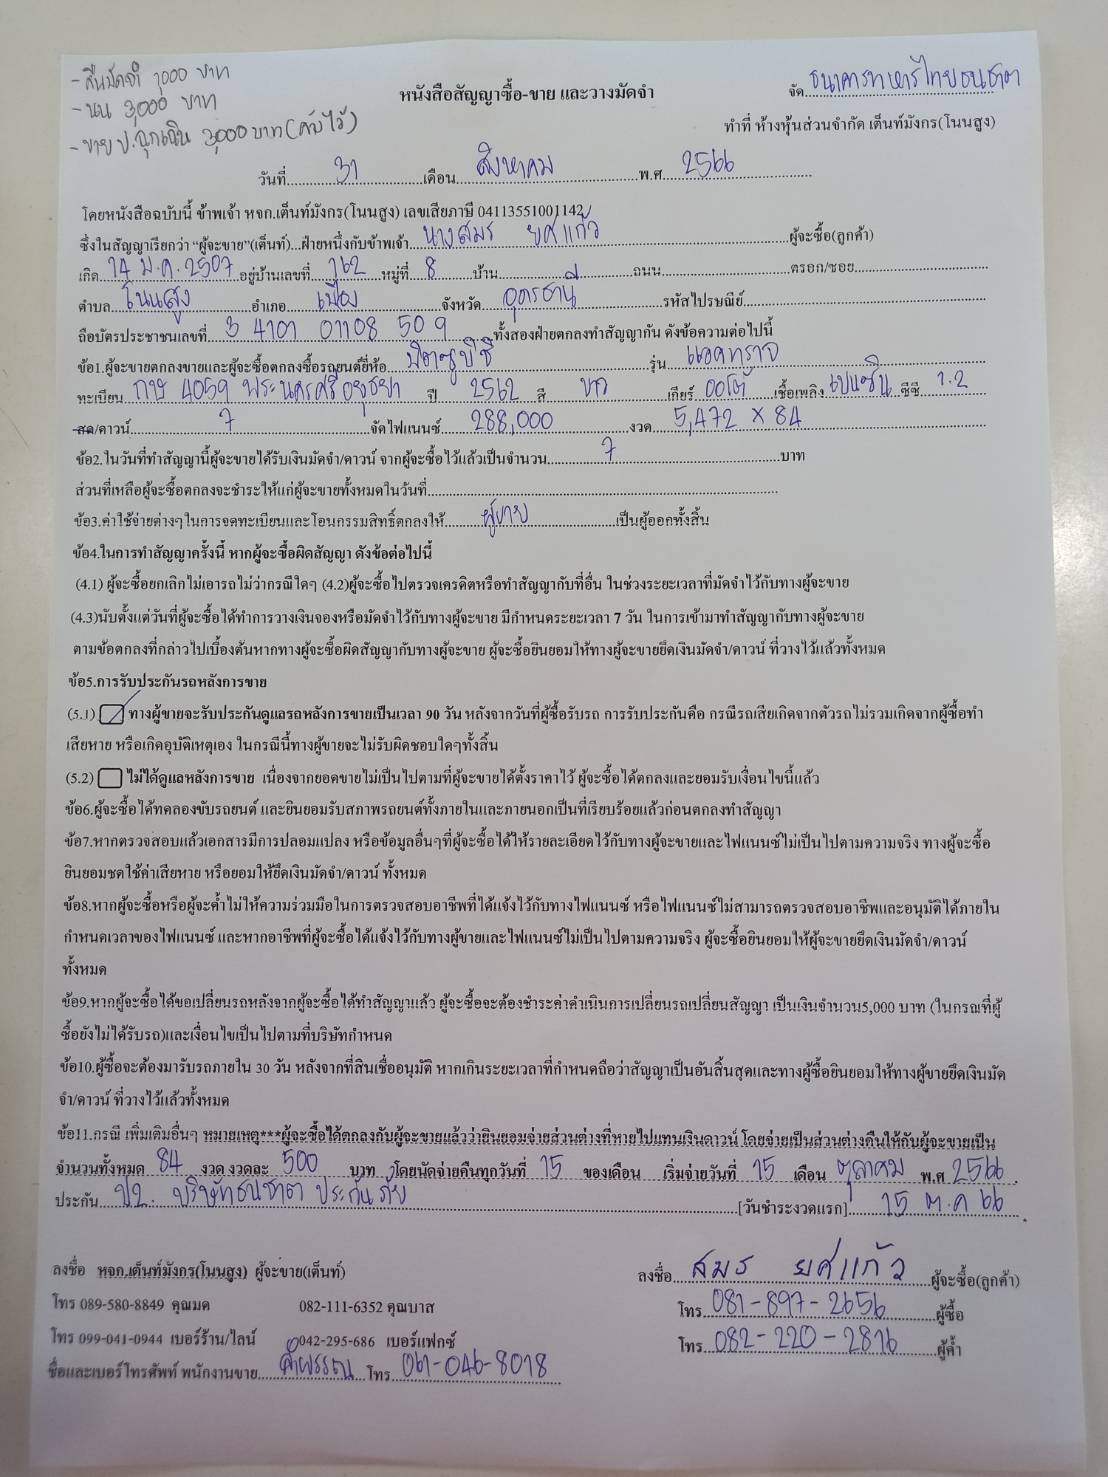 - คืนมัดจำ 1000 บาท
- นน 3,000 บาท
- ขาย ป.ฉุกเฉิน 3,000 บาท (คับไว้)
จัด ธนาคารทหารไทยธนชาต
หนังสือสัญญาซื้อ-ขาย และวางมัดจำ
ทำที่ ห้างหุ้นส่วนจำกัด เต็นท์มังกร(โนนสูง)
วันที่ 31 เดือน สิงหาคม พ.ศ 2566
โดยหนังสือฉบับนี้ ข้าพเจ้า หจก.เต็นท์มังกร(โนนสูง) เลขเสียภาษี 04113551001142
ซึ่งในสัญญาเรียกว่า "ผู้จะขาย"(เต็นท์)...ฝ่ายหนึ่งกับข้าพเจ้า นางสมร ยศแก้ว ผู้จะซื้อ(ลูกค้า)
เกิด 14 ม.ค. 2507 อยู่บ้านเลขที่ 162 หมู่ที่ 8 บ้าน ถนน ตรอก/ซอย
ตำบล โนนสูง อำเภอ เมือง จังหวัด อุดรธานี รหัสไปรษณีย์
ถือบัตรประชาชนเลขที่ 3 4101 01108 50 9 ทั้งสองฝ่ายตกลงทำสัญญากัน ดังข้อความต่อไปนี้
ข้อ1.ผู้จะขายตกลงขายและผู้จะซื้อตกลงซื้อรถยนต์ยี่ห้อ มิตซูบิชิ รุ่น แอคทราจ
ทะเบียน กษ 4059 พระนครศรีอยุธยา ปี 2562 สี ขาว เกียร์ ออโต้ เชื้อเพลิง เบนซิน ซีซี 1.2
สด/ดาวน์ 7 จัดไฟแนนซ์ 288,000 งวด 5,472 x 84
ข้อ2.ในวันที่ทำสัญญานี้ผู้จะขายได้รับเงินมัดจำ/ดาวน์ จากผู้จะซื้อไว้แล้วเป็นจำนวน 7 บาท
ส่วนที่เหลือผู้จะซื้อตกลงจะชำระให้แก่ผู้จะขายทั้งหมดในวันที่
ข้อ3.ค่าใช้จ่ายต่างๆในการจดทะเบียนและโอนกรรมสิทธิ์ตกลงให้ ผู้ขาย เป็นผู้ออกทั้งสิ้น
ข้อ4.ในการทำสัญญาครั้งนี้ หากผู้จะซื้อผิดสัญญา ดังข้อต่อไปนี้
(4.1) ผู้จะซื้อยกเลิกไม่เอารถไม่ว่ากรณีใดๆ (4.2)ผู้จะซื้อไปตรวจเครดิตหรือทำสัญญากับที่อื่น ในช่วงระยะเวลาที่มัดจำไว้กับทางผู้จะขาย
(4.3)นับตั้งแต่วันที่ผู้จะซื้อได้ทำการวางเงินจองหรือมัดจำไว้กับทางผู้จะขาย มีกำหนดระยะเวลา 7 วัน ในการเข้ามาทำสัญญากับทางผู้จะขาย
ตามข้อตกลงที่กล่าวไปเบื้องต้นหากทางผู้จะซื้อผิดสัญญากับทางผู้จะขาย ผู้จะซื้อยินยอมให้ทางผู้จะขายยึดเงินมัดจำ/ดาวน์ ที่วางไว้แล้วทั้งหมด
ข้อ5.การรับประกันรถหลังการขาย
(5.1) ทางผู้ขายจะรับประกันดูแลรถหลังการขายเป็นเวลา 90 วัน หลังจากวันที่ผู้ซื้อรับรถ การรับประกันคือ กรณีรถเสียเกิดจากตัวรถไม่รวมเกิดจากผู้ซื้อทำ
เสียหาย หรือเกิดอุบัติเหตุเอง ในกรณีนี้ทางผู้ขายจะไม่รับผิดชอบใดๆทั้งสิ้น
(5.2) ไม่ได้ดูแลหลังการขาย เนื่องจากยอดขายไม่เป็นไปตามที่ผู้จะขายได้ตั้งราคาไว้ ผู้จะซื้อได้ตกลงและยอมรับเงื่อนไขนี้แล้ว
ข้อ6.ผู้จะซื้อได้ทดลองขับรถยนต์ และยินยอมรับสภาพรถยนต์ทั้งภายในและภายนอกเป็นที่เรียบร้อยแล้วก่อนตกลงทำสัญญา
ข้อ7.หากตรวจสอบแล้วเอกสารมีการปลอมแปลง หรือข้อมูลอื่นๆที่ผู้จะซื้อได้ให้รายละเอียดไว้กับทางผู้จะขายและไฟแนนซ์ไม่เป็นไปตามความจริง ทางผู้จะซื้อ
ยินยอมชดใช้ค่าเสียหาย หรือยอมให้ยึดเงินมัดจำ/ดาวน์ ทั้งหมด
ข้อ8.หากผู้จะซื้อหรือผู้จะค้ำไม่ให้ความร่วมมือในการตรวจสอบอาชีพที่ได้แจ้งไว้กับทางไฟแนนซ์ หรือไฟแนนซ์ไม่สามารถตรวจสอบอาชีพและอนุมัติได้ภายใน
กำหนดเวลาของไฟแนนซ์ และหากอาชีพที่ผู้จะซื้อได้แจ้งไว้กับทางผู้ขายและไฟแนนซ์ไม่เป็นไปตามความจริง ผู้จะซื้อยินยอมให้ผู้จะขายยึดเงินมัดจำ/ดาวน์
ทั้งหมด
ข้อ9.หากผู้จะซื้อได้ขอเปลี่ยนรถหลังจากผู้จะซื้อได้ทำสัญญาแล้ว ผู้จะซื้อจะต้องชำระค่าดำเนินการเปลี่ยนรถเปลี่ยนสัญญา เป็นเงินจำนวน5,000 บาท (ในกรณีที่ผู้
ซื้อยังไม่ได้รับรถ)และเงื่อนไขเป็นไปตามที่บริษัทกำหนด
ข้อ10.ผู้ซื้อจะต้องมารับรถภายใน 30 วัน หลังจากที่สินเชื่ออนุมัติ หากเกินระยะเวลาที่กำหนดถือว่าสัญญาเป็นอันสิ้นสุดและทางผู้ซื้อยินยอมให้ทางผู้ขายยึดเงินมัด
จำ/ดาวน์ ที่วางไว้แล้วทั้งหมด
ข้อ11.กรณี เพิ่มเติมอื่นๆ หมายเหตุ***ผู้จะซื้อได้ตกลงกับผู้จะขายแล้วว่ายินยอมจ่ายส่วนต่างที่หายไปแทนเงินดาวน์ โดยจ่ายเป็นส่วนต่างคืนให้กับผู้จะขายเป็น
จำนวนทั้งหมด 84 งวด งวดละ 500 บาท โดยนัดจ่ายคืนทุกวันที่ 15 ของเดือน เริ่มจ่ายวันที่ 15 เดือน ตุลาคม พ.ศ 2566
ประกัน ป2. บริษัทธนชาตประกันภัย [วันชำระงวดแรก] 15 ต.ค 66
ลงชื่อ หจก.เต็นท์มังกร(โนนสูง) ผู้จะขาย(เต็นท์)
ลงชื่อ สมร ยศแก้ว ผู้จะซื้อ(ลูกค้า)
โทร 089-580-8849 คุณมด 082-111-6352 คุณบาส
โทร 081-897-2656 ผู้ซื้อ
โทร 099-041-0944 เบอร์ร้าน/ไลน์ 042-295-686 เบอร์แฟกซ์
โทร 082-220-2816 ผู้ค้ำ
ชื่อและเบอร์โทรศัพท์ พนักงานขาย คำพรรณ โทร 061-046-8018